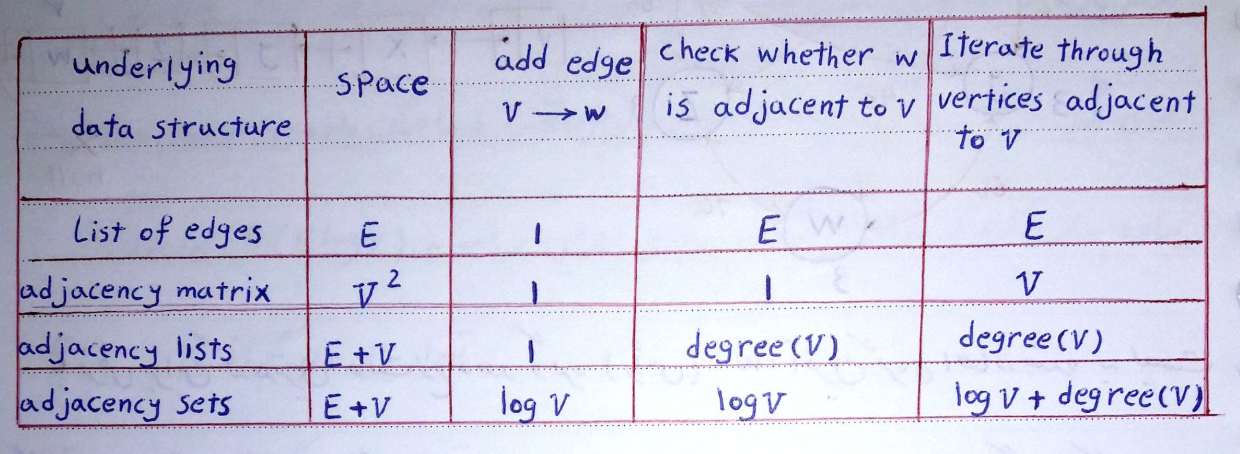 underlying data structure | space | add edge V → w | check whether w is adjacent to V | Iterate through vertices adjacent to V
List of edges | E | 1 | E | E
adjacency matrix | V² | 1 | 1 | V
adjacency lists | E + V | 1 | degree (V) | degree (V)
adjacency sets | E + V | log V | log V | log V + degree (V)